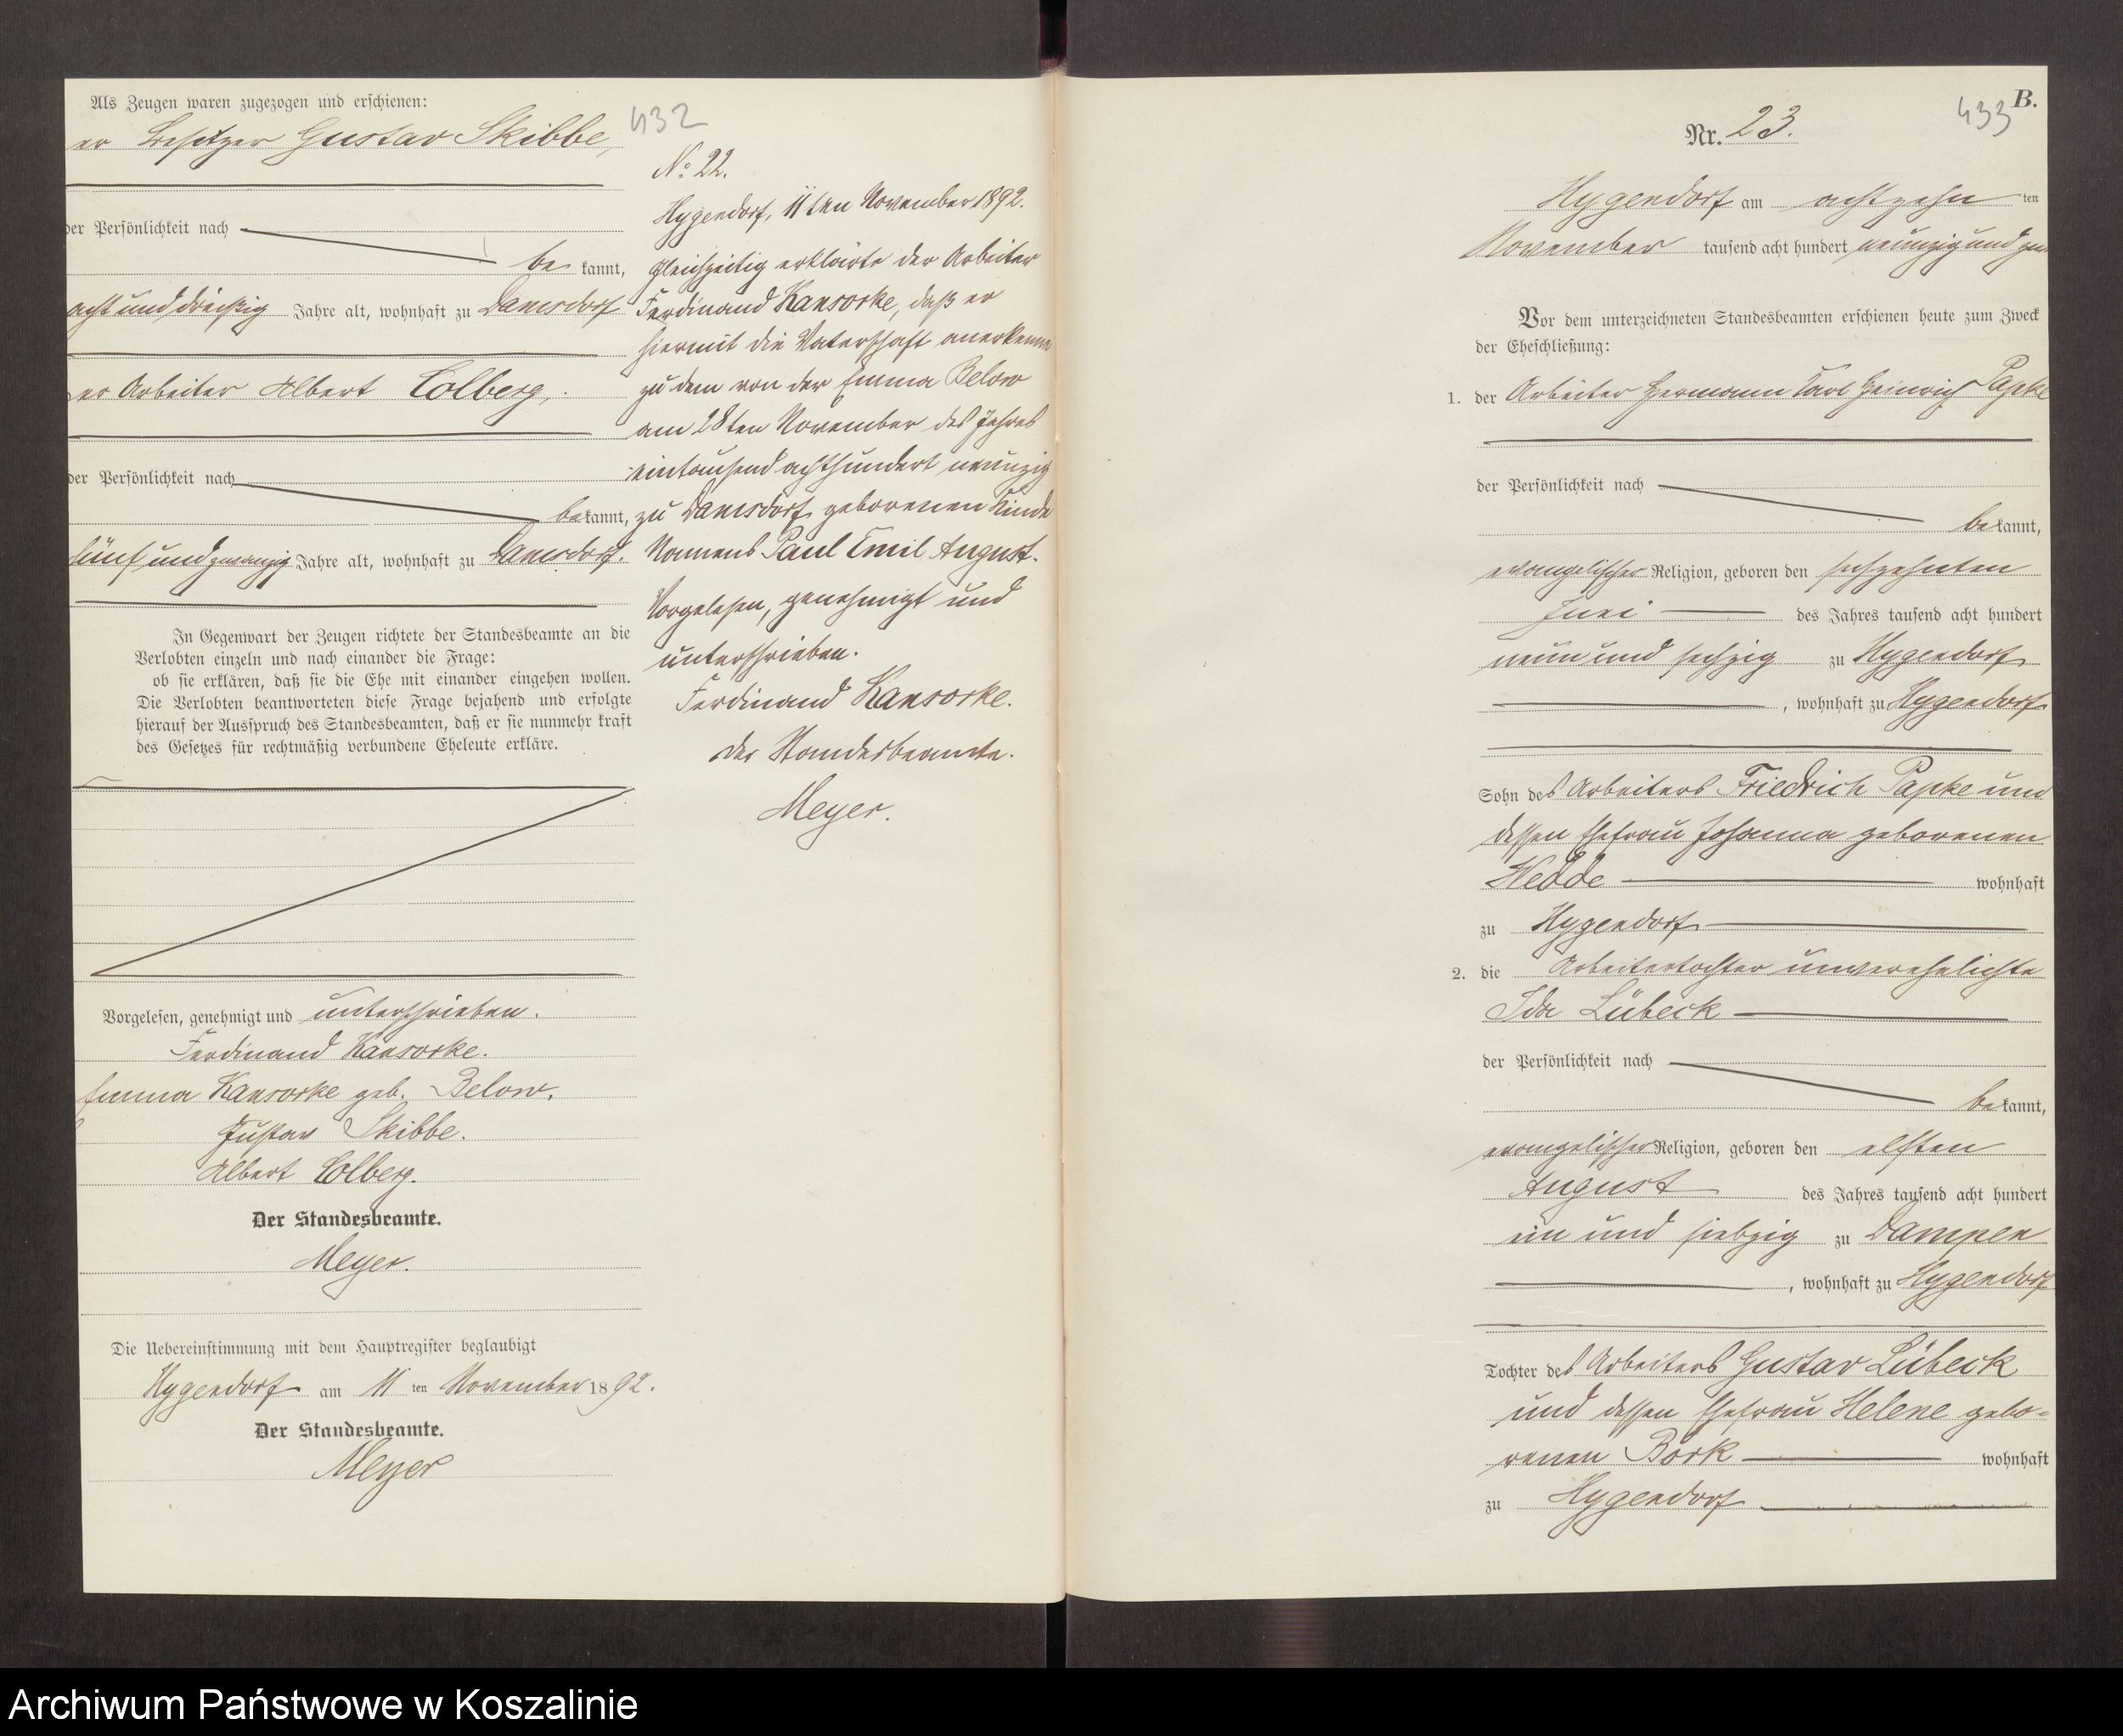 Als Zeugen waren zugezogen und erschienen:
432
er Besitzer Gustav Skibbe,
der Persönlichkeit nach
be kannt,
acht und dreißig Jahre alt, wohnhaft zu Damsdorf
er Arbeiter Albert Colberg,
der Persönlichkeit nach
bekannt,
fünf und zwanzig Jahre alt, wohnhaft zu Damsdorf.
In Gegenwart der Zeugen richtete der Standesbeamte an die
Verlobten einzeln und nach einander die Frage:
ob sie erklären, daß sie die Ehe mit einander eingehen wollen.
Die Verlobten beantworteten diese Frage bejahend und erfolgte
hierauf der Ausspruch des Standesbeamten, daß er sie nunmehr kraft
des Gesetzes für rechtmäßig verbundene Eheleute erkläre.
Vorgelesen, genehmigt und unterschrieben.
Ferdinand Kansorke.
Emma Kansorke geb. Below.
Gustav Skibbe.
Albert Colberg.
Der Standesbeamte.
Meyer.
Die Uebereinstimmung mit dem Hauptregister beglaubigt
Hygendorf am 11 ten November 1892.
Der Standesbeamte.
Meyer
No 22.
Hygendorf, 11ten November 1892.
Gleichzeitig erklärte der Arbeiter
Ferdinand Kansorke, daß er
hiermit die Vaterschaft anerkenne
zu dem von der Emma Below
am 28ten November des Jahres
eintausend achthundert neunzig
zu Damsdorf geborenen Kinde
Namens Paul Emil August.
Vorgelesen, genehmigt und
unterschrieben.
Ferdinand Kansorke.
Der Standesbeamte.
Meyer.
433
B.
Nr. 23.
Hygendorf am achtzehn ten
November tausend acht hundert neunzig und zwe
Vor dem unterzeichneten Standesbeamten erschienen heute zum Zweck
der Eheschließung:
1. der Arbeiter Hermann Carl Heinrich Papke
der Persönlichkeit nach
bekannt,
evangelischer Religion, geboren den sechzehnten
Juni des Jahres tausend acht hundert
neun und sechzig zu Hygendorf
, wohnhaft zu Hygendorf
Sohn des Arbeiters Friedrich Papke und
dessen Ehefrau Johanna geborenen
Wedde wohnhaft
zu Hygendorf
2. die Arbeitertochter unverehelichte
Ida Lübeck
der Persönlichkeit nach
bekannt,
evangelischer Religion, geboren den elften
August des Jahres tausend acht hundert
ein und siebzig zu Dampen
, wohnhaft zu Hygendorf
Tochter des Arbeiters Gustav Lübeck
und dessen Ehefrau Helene gebo-
renen Bork wohnhaft
zu Hygendorf
Archiwum Państwowe w Koszalinie